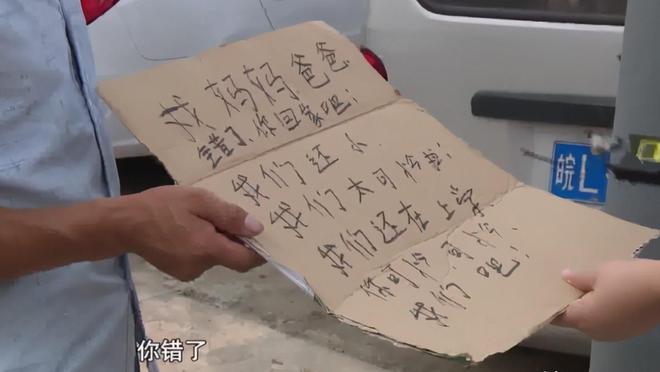 我妈妈.爸爸.
错了你回家吧!
我们还小.
我们太可怜啦!
我们还在上学
你可怜.可怜.
我们吧!
皖L
你错了